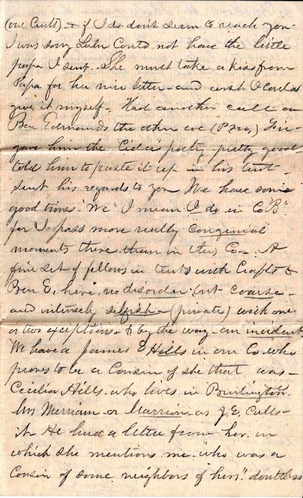 (one Cent) & if I do don't seem to reach you.
I was sorry Lulu could not have the little
paper I sent. She must take a kiss from
Papa for her nice letter - and wish I could
give it myself. Had another call on
Ben Edmunds the other eve
gave him the poetry, pretty good
told him to paste it up in his tent
Sent his regards to you We have some
good times. "We" I mean I do in Co "B"
for I pass more really congenial
moments there than in this Co - A
fine set of fellows in tents with Crafts &
Ben E, here, no disorder: coarse
and intensely selfish - (private) with one
or two exceptions - & by the way - an incident
We have a James E Hills in our Co. who
proves to be a Cousin of she that was
Cecilia Hills. who lives in Burlington.
Mr Merriam or Marriam as J. E. calls
it He had a letter from her. in
which she mentions me "who was a
Cousin of some neighbors of hers" doubtless